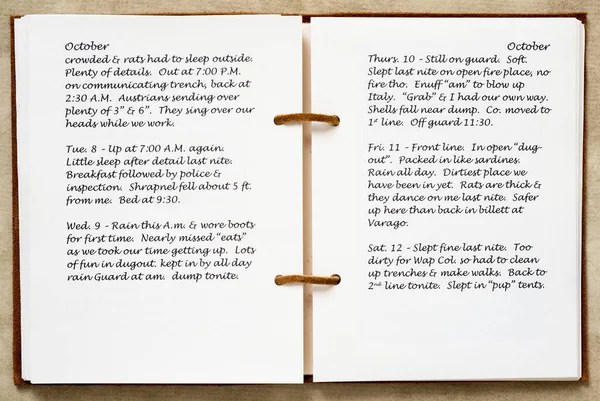 October
crowded & rats had to sleep outside.
Plenty of details.  Out at 7:00 P.M.
on communicating trench, back at
2:30 A.M.  Austrians sending over
plenty of 3" & 6".  They sing over our
heads while we work.
Tue. 8 - Up at 7:00 A.M. again.
Little sleep after detail last nite.
Breakfast followed by police &
inspection.  Shrapnel fell about 5 ft.
from me.  Bed at 9:30.
Wed. 9 - Rain this A.m. & wore boots
for first time.  Nearly missed "eats"
as we took our time getting up.  Lots
of fun in dugout. kept in by all day
rain Guard at am.  dump tonite.
October
Thurs. 10 - Still on guard.  Soft.
Slept last nite on open fire place, no
fire tho.  Enuff "am" to blow up
Italy.  "Grab" & I had our own way.
Shells fall near dump.  Co. moved to
1st line.  Off guard 11:30.
Fri. 11 - Front line.  In open "dug-
out".  Packed in like sardines.
Rain all day.  Dirtiest place we
have been in yet.  Rats are thick &
they dance on me last nite.  Safer
up here than back in billett at
Varago.
Sat. 12 - Slept fine last nite.  Too
dirty for Wap Col. so had to clean
up trenches & make walks.  Back to
2nd line tonite.  Slept in "pup" tents.